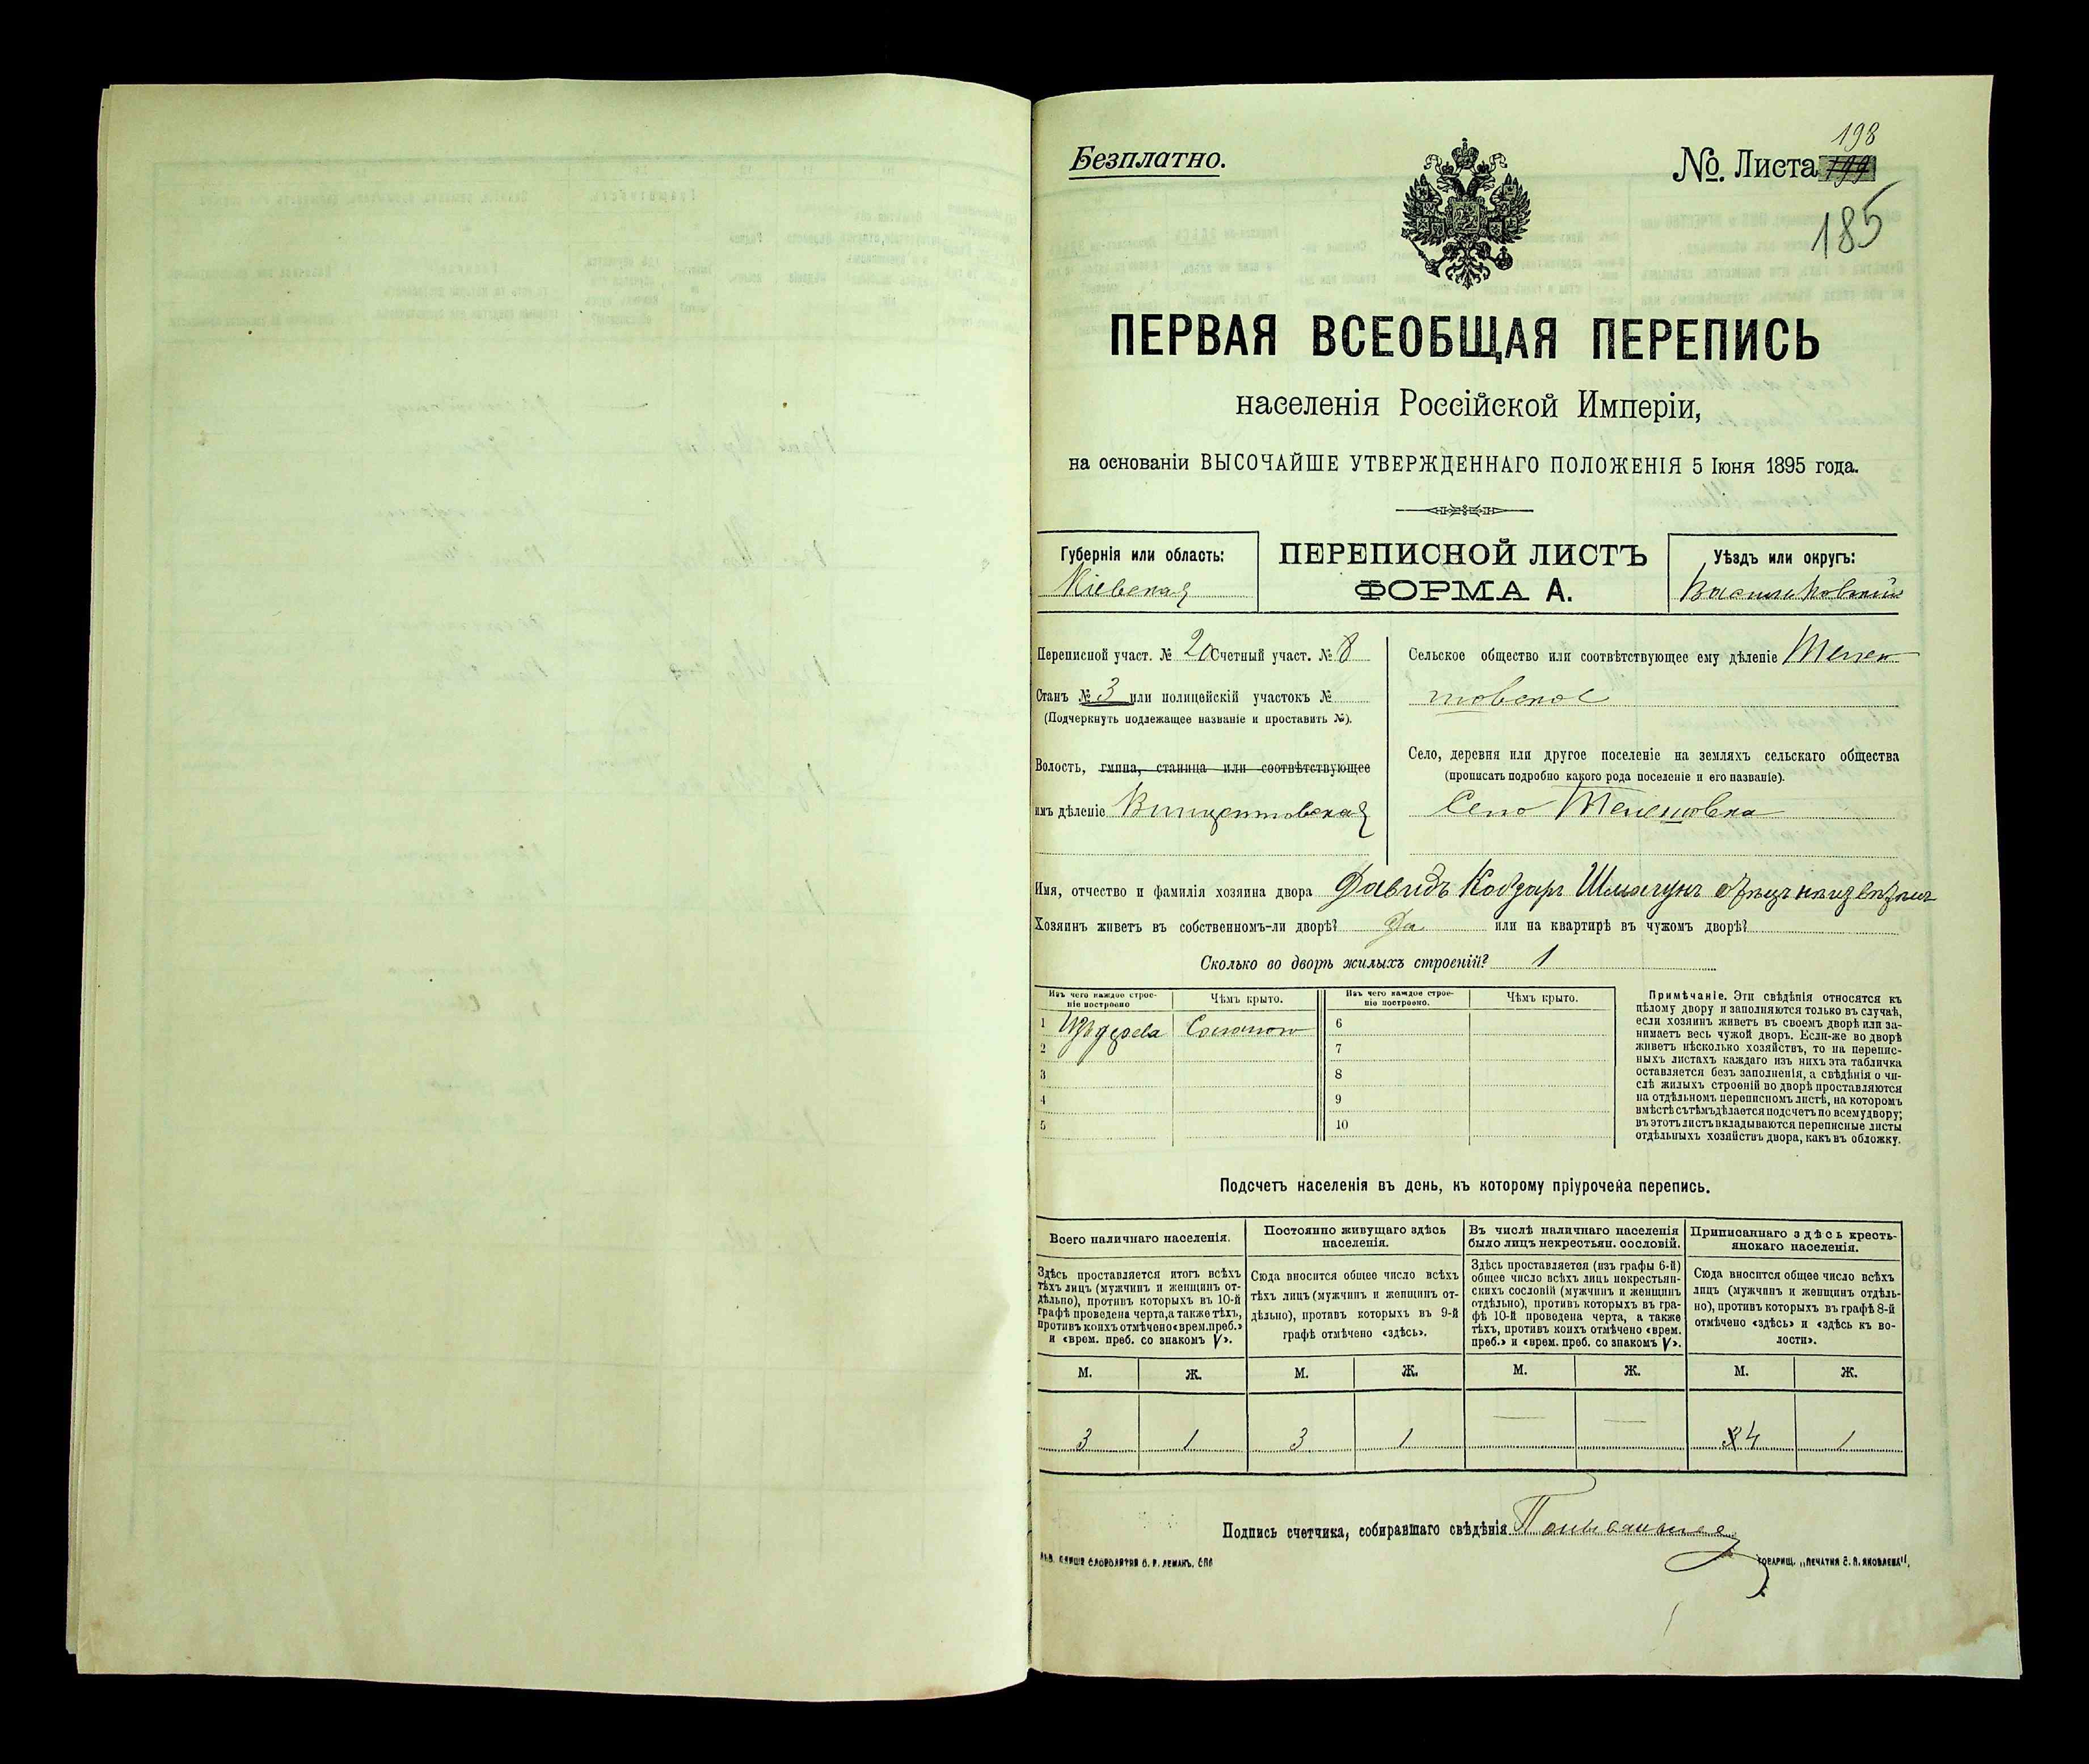 Безплатно.
198
№. Листа 199
185
ПЕРВАЯ ВСЕОБЩАЯ ПЕРЕПИСЬ
населенія Россійской Имперіи,
на основаніи ВЫСОЧАЙШЕ УТВЕРЖДЕННАГО ПОЛОЖЕНІЯ 5 Іюня 1895 года.
Губернія или область:
Кіевская
ПЕРЕПИСНОЙ ЛИСТЪ
ФОРМА А.
Уѣздъ или округъ:
Васильковскій
Переписной участ. № 20 Счетный участ. № 8
Станъ № 3 или полицейскій участокъ №
(Подчеркнуть подлежащее названіе и проставить №).
Волость, гмина, станица или соотвѣтствующее
имъ дѣленіе Винцентовская
Сельское общество или соотвѣтствующее ему дѣленіе Телеш
товское
Село, деревня или другое поселеніе на земляхъ сельскаго общества
(прописать подробно какого рода поселеніе и его названіе).
Село Телешовка
Имя, отчество и фамилія хозяина двора Давидъ Кобзарь Шмагунъ
Хозяинъ живетъ въ собственномъ-ли дворѣ? Да или на квартирѣ въ чужомъ дворѣ?
Сколько во дворѣ жилыхъ строеній? 1
Изъ чего каждое строе-
ніе построено
Чѣмъ крыто.
Изъ чего каждое строе-
ніе построено.
Чѣмъ крыто.
1 Изъ дерева Соломою 6
2 7
3 8
4 9
5 10
Примѣчаніе. Эти свѣдѣнія относятся къ
цѣлому двору и заполняются только въ случаѣ,
если хозяинъ живетъ въ своемъ дворѣ или за-
нимаетъ весь чужой дворъ. Если-же во дворѣ
живетъ нѣсколько хозяйствъ, то на перепис-
ныхъ листахъ каждаго изъ нихъ эта табличка
оставляется безъ заполненія, а свѣдѣнія о чи-
слѣ жилыхъ строеній во дворѣ проставляются
на отдѣльномъ переписномъ листѣ, на которомъ
вмѣстѣ съ тѣмъ дѣлается подсчетъ по всему двору;
въ этотъ листъ вкладываются переписные листы
отдѣльныхъ хозяйствъ двора, какъ въ обложку.
Подсчетъ населенія въ день, къ которому пріурочена перепись.
Всего наличнаго населенія.
Здѣсь проставляется итогъ всѣхъ
тѣхъ лицъ (мужчинъ и женщинъ от-
дѣльно), противъ которыхъ въ 10-й
графѣ проведена черта, а также тѣхъ,
противъ коихъ отмѣчено «врем. преб.»
и «врем. преб. со знакомъ V».
Постоянно живущаго здѣсь
населенія.
Сюда вносится общее число всѣхъ
тѣхъ лицъ (мужчинъ и женщинъ от-
дѣльно), противъ которыхъ въ 9-й
графѣ отмѣчено «здѣсь».
Въ числѣ наличнаго населенія
было лицъ некрестьян. сословій.
Здѣсь проставляется (изъ графы 6-й)
общее число всѣхъ лицъ некрестьян-
скихъ сословій (мужчинъ и женщинъ
отдѣльно), противъ которыхъ въ гра-
фѣ 10-й проведена черта, а также
тѣхъ, противъ коихъ отмѣчено «врем.
преб.» и «врем. преб. со знакомъ V».
Приписаннаго здѣсь кресть-
янскаго населенія.
Сюда вносится общее число всѣхъ
лицъ (мужчинъ и женщинъ отдѣль-
но), противъ которыхъ въ графѣ 8-й
отмѣчено «здѣсь» и «здѣсь къ во-
лости».
М. Ж. М. Ж. М. Ж. М. Ж.
3 1 3 1 — — 3 4 1
Подпись счетчика, собиравшаго свѣдѣнія
СЛОВОЛИТНЯ О. И. ЛЕМАНЪ. СПБ
ТОВАРИЩ. „ПЕЧАТНЯ С. П. ЯКОВЛЕВА".